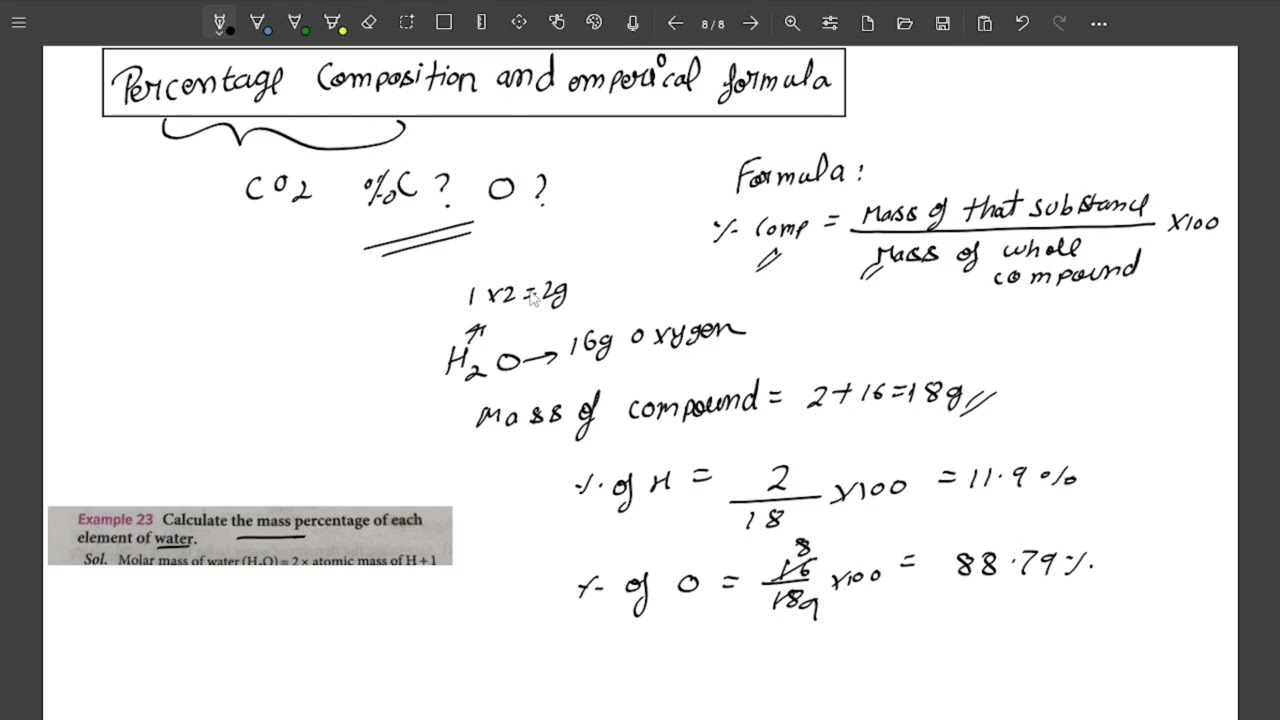 8/8
Percentage Composition and emperical formula
CO2 %C ? O ?
Formula :
% Comp = Mass of that substance / Mass of whole compound X100
1 x2 = 2g
H2O → 16g oxygen
Mass of compound = 2+16=18g
% of H = 2/18 X100 = 11.9 %
% of O = 16/18 8/9 x100 = 88.79 %
Example 23 Calculate the mass percentage of each
element of water.
Sol. Molar mass of water (H₂O) = 2 × atomic mass of H + 1